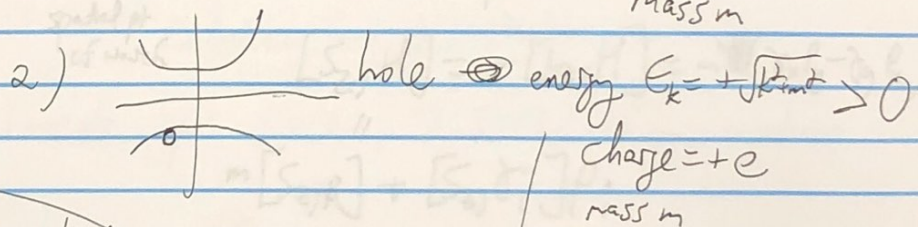 mass m
2) hole ⊖ energy E_k = +√(k²+m²) > 0
charge = +e
mass m